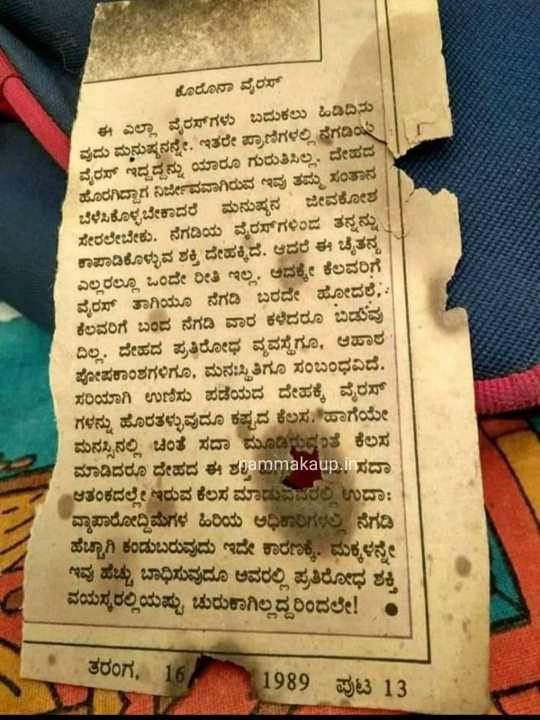 ಕೊರೊನಾ ವೈರಸ್
ಈ ಎಲ್ಲಾ ವೈರಸ್‌ಗಳು ಬದುಕಲು ಹಿಡಿದಿರು
ವುದು ಮನುಷ್ಯನನ್ನೇ. ಇತರೇ ಪ್ರಾಣಿಗಳಲ್ಲಿ ನೆಗಡಿಯ
ವೈರಸ್ ಇದ್ದದ್ದನ್ನು ಯಾರೂ ಗುರುತಿಸಿಲ್ಲ. ದೇಹದ
ಹೊರಗಿದ್ದಾಗ ನಿರ್ಜೀವವಾಗಿರುವ ಇವು ತಮ್ಮ ಸಂತಾನ
ಬೆಳೆಸಿಕೊಳ್ಳಬೇಕಾದರೆ ಮನುಷ್ಯನ ಜೀವಕೋಶ
ಸೇರಲೇಬೇಕು. ನೆಗಡಿಯ ವೈರಸ್‌ಗಳಿಂದ ತನ್ನನ್ನು
ಕಾಪಾಡಿಕೊಳ್ಳುವ ಶಕ್ತಿ ದೇಹಕ್ಕಿದೆ. ಆದರೆ ಈ ಚೈತನ್ಯ
ಎಲ್ಲರಲ್ಲೂ ಒಂದೇ ರೀತಿ ಇಲ್ಲ. ಅದಕ್ಕೇ ಕೆಲವರಿಗೆ
ವೈರಸ್ ತಾಗಿಯೂ ನೆಗಡಿ ಬರದೇ ಹೋದರೆ,
ಕೆಲವರಿಗೆ ಬಂದ ನೆಗಡಿ ವಾರ ಕಳೆದರೂ ಬಿಡುವು
ದಿಲ್ಲ. ದೇಹದ ಪ್ರತಿರೋಧ ವ್ಯವಸ್ಥೆಗೂ, ಆಹಾರ
ಪೋಷಕಾಂಶಗಳಿಗೂ, ಮನಃಸ್ಥಿತಿಗೂ ಸಂಬಂಧವಿದೆ.
ಸರಿಯಾಗಿ ಉಣಿಸು ಪಡೆಯದ ದೇಹಕ್ಕೆ ವೈರಸ್
ಗಳನ್ನು ಹೊರತಳ್ಳುವುದೂ ಕಷ್ಟದ ಕೆಲಸ. ಹಾಗೆಯೇ
ಮನಸ್ಸಿನಲ್ಲಿ ಚಿಂತೆ ಸದಾ ಮೂಡಿರುವಂತೆ ಕೆಲಸ
ಮಾಡಿದರೂ ದೇಹದ ಈ nammakaup.in ಸದಾ
ಆತಂಕದಲ್ಲೇ ಇರುವ ಕೆಲಸ ಮಾಡುವವರಲ್ಲಿ ಉದಾ:
ವ್ಯಾಪಾರೋದ್ದಿಮೆಗಳ ಹಿರಿಯ ಅಧಿಕಾರಿಗಳಲ್ಲಿ ನೆಗಡಿ
ಹೆಚ್ಚಾಗಿ ಕಂಡುಬರುವುದು ಇದೇ ಕಾರಣಕ್ಕೆ. ಮಕ್ಕಳನ್ನೇ
ಇವು ಹೆಚ್ಚು ಬಾಧಿಸುವುದೂ ಅವರಲ್ಲಿ ಪ್ರತಿರೋಧ ಶಕ್ತಿ
ವಯಸ್ಕರಲ್ಲಿಯಷ್ಟು ಚುರುಕಾಗಿಲ್ಲದ್ದರಿಂದಲೇ! ●
ತರಂಗ, 16 1989 ಪುಟ 13